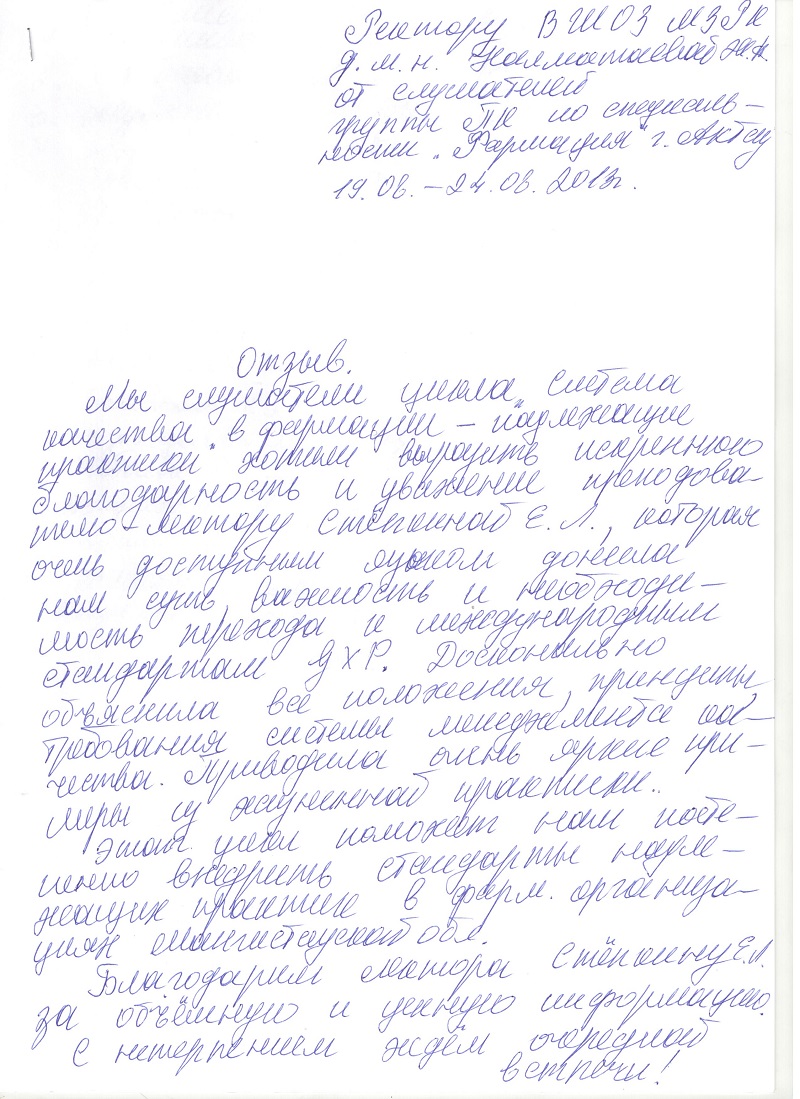 Ректору ВШОЗ МЗ РК
д.м.н. Калматаевой Ж.А.
от слушателей
группы ПК по специаль-
ности "Фармация" г. Актау
19.08. – 24.08. 2013г.
Отзыв.
Мы слушатели цикла "Система
качества в фармации – надлежащие
практики" хотим выразить искреннюю
благодарность и уважение преподова-
телю-лектору Стёпкиной Е.Л., которая
очень доступным языком донесла
нам суть, важность и необходи-
мость перехода к международным
стандартам GXP. Досконально
объяснила все положения, принципы,
требования системы менеджмента ка-
чества. Приводила очень яркие при-
меры из жизненной практики..
Этот цикл поможет нам посте-
пенно внедрить стандарты надле-
жащих практик в фарм. организа-
циях Мангистауской обл.
Благодарим лектора Стёпкину Е.Л.
за объёмную и ценную информацию.
С нетерпением ждём очередной
встречи!